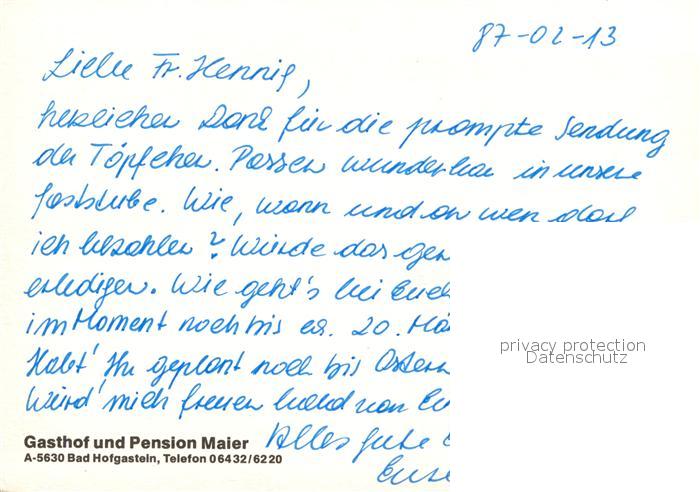 87-02-13
Liebe Fr. Hennig,
herzlichen Dank für die prompte Sendung
der Töpfchen. Passen wunderbar in unsere
Gaststube. Wie, wann und an wen darf
ich bezahlen? Würde das ger
erledigen. Wie geht's bei Euch
im Moment noch bis ca. 20. Mä
Habt Ihr geplant noch bis Ostern
Würd' mich freuen bald von Eu
Alles Gute
Gasthof und Pension Maier
A-5630 Bad Hofgastein, Telefon 06432/6220
privacy protection
Datenschutz